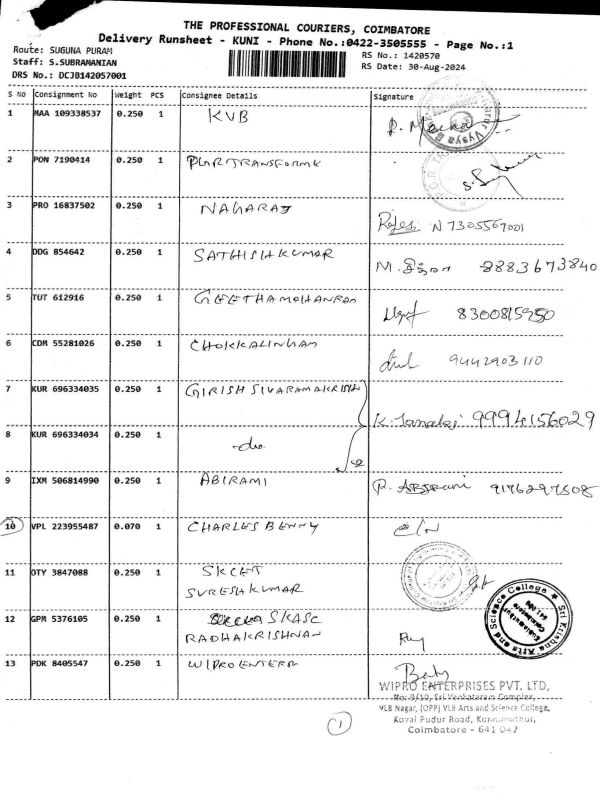 THE PROFESSIONAL COURIERS, COIMBATORE
Delivery Runsheet - KUNI - Phone No.:0422-3505555 - Page No.:1
Route: SUGUNA PURAM
Staff: S.SUBRAMANIAN
DRS No.: DCJB142057001
RS No.: 1420570
RS Date: 30-Aug-2024
S No Consignment No Weight PCS Consignee Details Signature
1 MAA 109338537 0.250 1 KVB
2 PON 7190414 0.250 1 PGRTRANSFORME
3 PRO 16837502 0.250 1 NAGARAJ N 7305567001
4 DDG 854642 0.250 1 SATHISHKUMAR M. 8883673840
5 TUT 612916 0.250 1 GEETHAMOHANRAJ 8300815950
6 CDM 55281026 0.250 1 CHOKKALINGAM 9442903110
7 KUR 696334035 0.250 1 GIRISH SIVARAMAKRISH
K. Janaki 9994156029
8 KUR 696334034 0.250 1 -do-
9 IXM 506814990 0.250 1 ABIRAMI 9176297508
10 VPL 223955487 0.070 1 CHARLES BENNY
11 OTY 3847088 0.250 1 SKCET
SURESHKUMAR
12 GPM 5376105 0.250 1 SKASC
RADHAKRISHNAN
Sri Krishna Arts and Science College
Coimbatore
13 PDK 8405547 0.250 1 WIPRO ENTERP
WIPRO ENTERPRISES PVT. LTD,
No: 9/10, Sri Venkataram Complex,
VLB Nagar, (OPP) VLB Arts and Science College,
Kovai Pudur Road, Kuniamuthur,
Coimbatore - 641 042
1